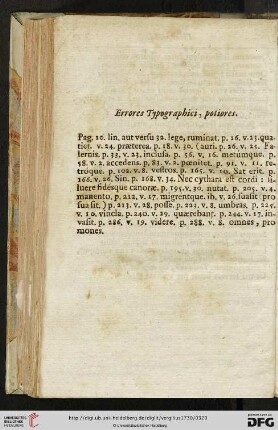 Errores Typographici, potiores.
Pag. 10. lin. aut versu 32. lege, ruminat. p. 16. v. 23. qua-
ties. v. 24. præterea. p. 18. v. 30. (auri. p. 26. v. 25. Fa-
lernis. p. 33. v. 23. inclusa. p. 56. v. 16. metumque. p.
58. v. 2. accedens. p. 83. v. 2. pœnitet. p. 91. v. 11. re-
troque. p. 102. v. 8. vestros. p. 165. v. 10. Sat erit. p.
166. v. 26. Sin. p. 168. v. 34. Nec cythara est cordi :
luere fidesque canoræ. p. 195. v. 30. nutat. p. 205. v. 4.
manento, p. 212. v. 17. migrentque. ib. v. 26. sualit pro
sua sit.) p. 213. v. 28. posse. p. 221. v. 8. umbras, p. 225.
v. 10. vincla. p. 240. v. 29. quærebant. p. 244. v. 17. in-
vasit. p. 286. v. 19. videre. p. 288. v. 8. omnes, pro
mones.
UNIVERSITÄTS-
BIBLIOTHEK
HEIDELBERG
http://digi.ub.uni-heidelberg.de/diglit/vergilius1730/0323
© Universitätsbibliothek Heidelberg
gefördert durch die
DFG